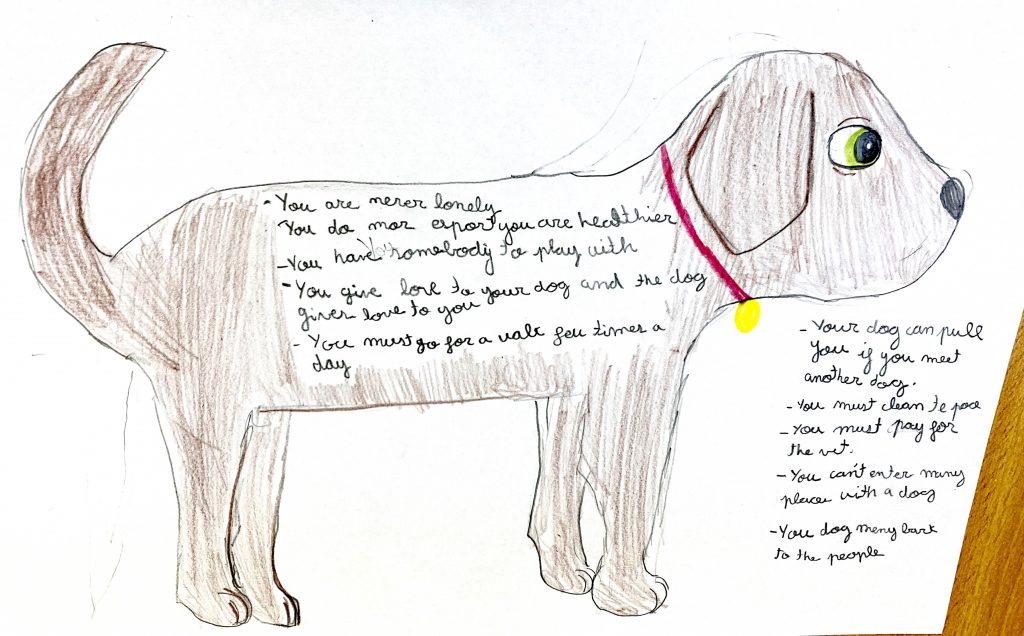 - You are never lonely
You do mor esport you are healthier
- You have somebody to play with
- You give love to your dog and the dog
gives love to you
- You must go for a valk feu times a
day
- Your dog can pull
you if you meet
another dog.
- You must clean te poo
- You must pay for
the vet.
- You can't enter many
place with a dog
- You dog meny bark
to the people